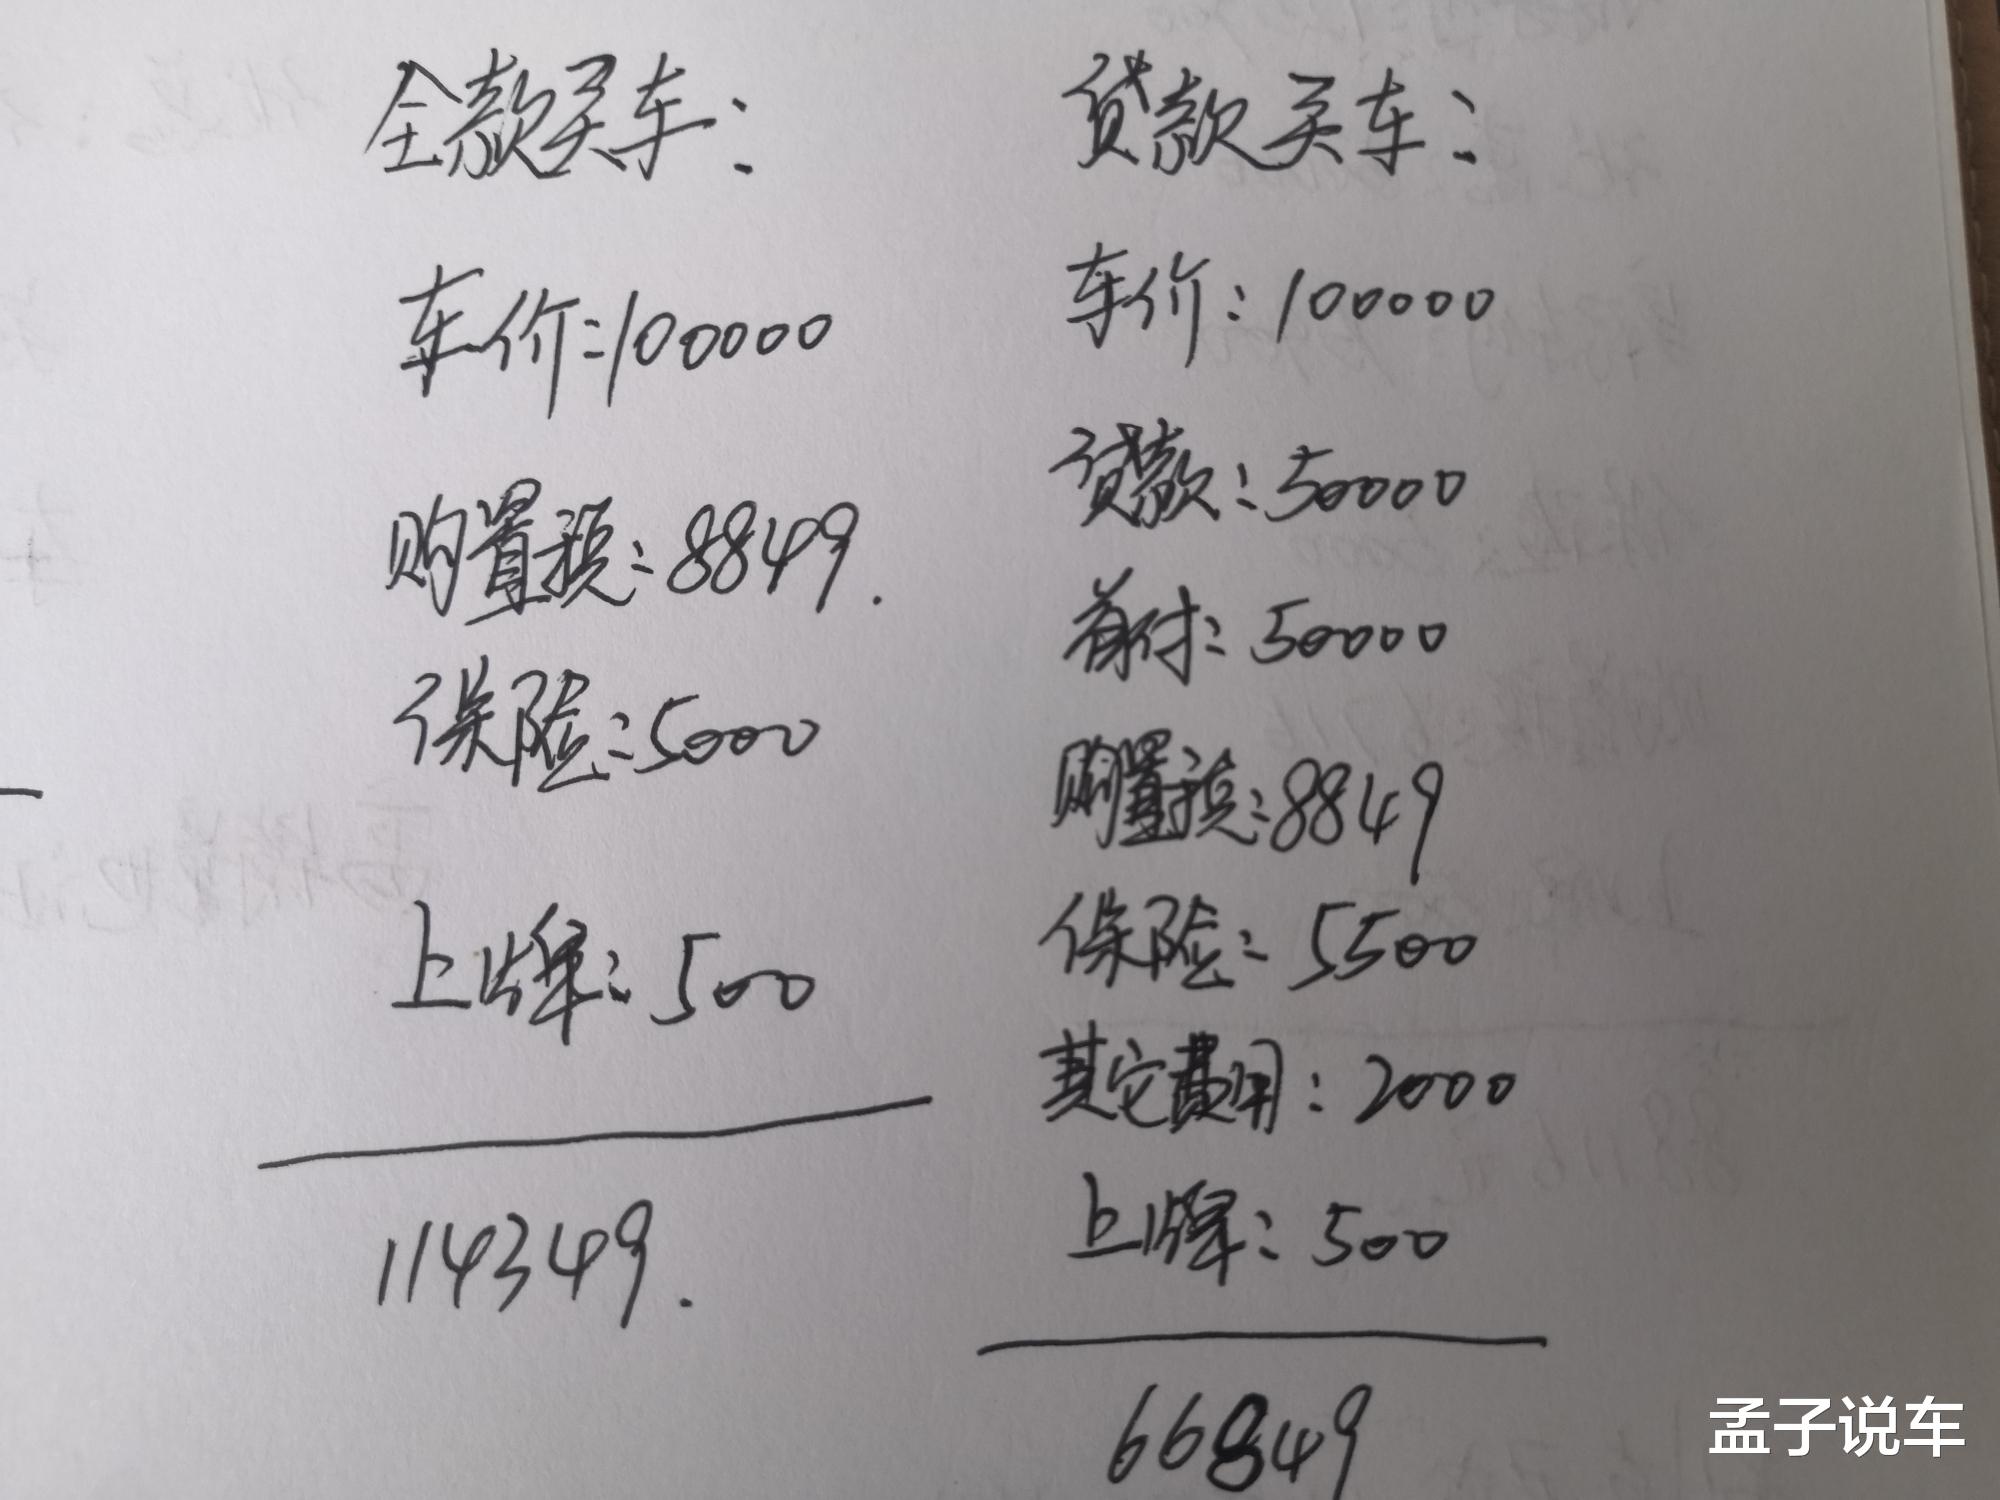 全款买车:
车价:100000
购置税:8849.
保险:5000
上牌:500
114349.
贷款买车:
车价:100000
贷款:50000
首付:50000
购置税:8849
保险:5500
其它费用:2000
上牌:500
66849
孟子说车